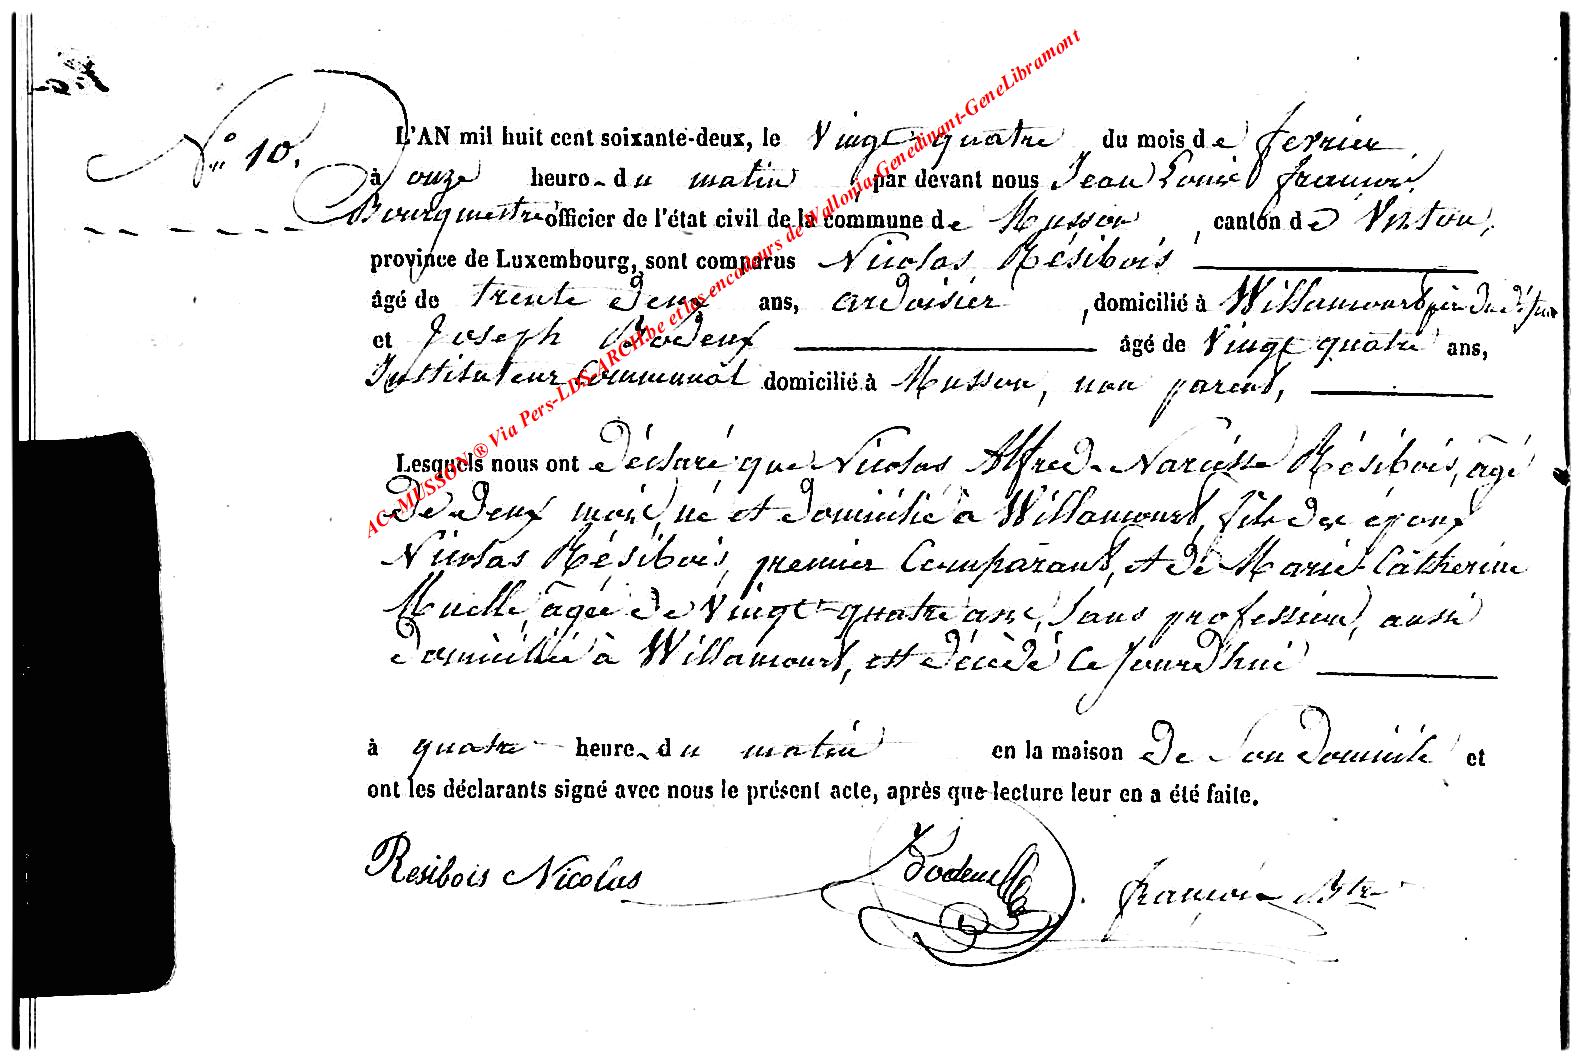 N° 10.
L'AN mil huit cent soixante-deux, le Vingt-quatre du mois de fevrier,
à onze heure du matin par devant nous Jean Louis François,
Bourgmestre officier de l'état civil de la commune de Musson, canton de Virton,
province de Luxembourg, sont comparus Nicolas Résibois
âgé de trente deux ans, ardoisier, domicilié à Willancourt, père du défunt
et Joseph Bodeux âgé de Vingt quatre ans,
Instituteur communal domicilié à Musson, non parent,
Lesquels nous ont déclaré que Nicolas Alfred Narcisse Résibois, âgé
de deux mois, né et domicilié à Willancourt, fils des époux
Nicolas Résibois, premier Comparant, et de Marie Câtherine
Muelle, âgée de Vingt-quatre ans, sans profession, aussi
domiciliée à Willancourt, est décédé ce jourd'hui
à quatre heure du matin en la maison de son domicile et
ont les déclarants signé avec nous le présent acte, après que lecture leur en a été faite.
Resibois Nicolas Bodeux françois Bstre
AC-MUSSON ® Via Pers-LDS-ARCH.be et les encodeurs de Wallonia-Genedinant-GeneLibramont